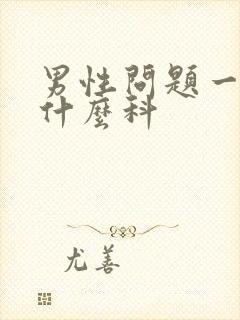 男性問題一
什麼科
尤善